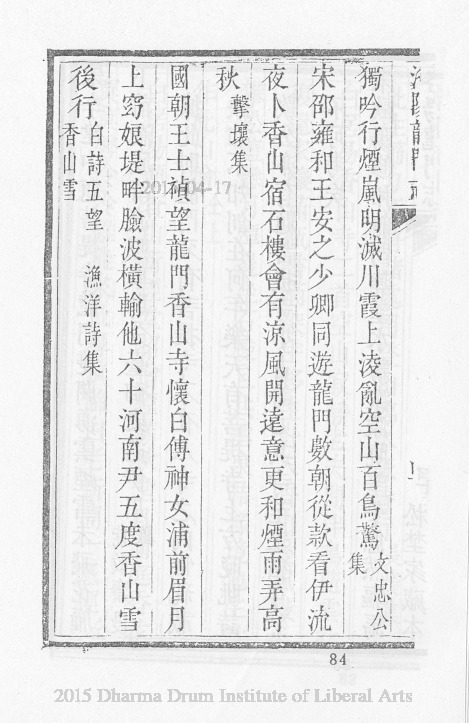 洛陽龍門志
獨吟行煙嵐明滅川霞上凌亂空山百鳥驚文忠公集
宋邵雍和王安之少卿同遊龍門數朝從款看伊流
夜卜香山宿石樓會有涼風開遠意更和煙雨弄高
秋擊壤集
國朝王士禎望龍門香山寺懷白傅神女浦前眉月
上窈娘堤畔臉波橫輸他六十河南尹五度香山雪
後行白詩五望香山雪 漁洋詩集
2015-04-17
84
2015 Dharma Drum Institute of Liberal Arts